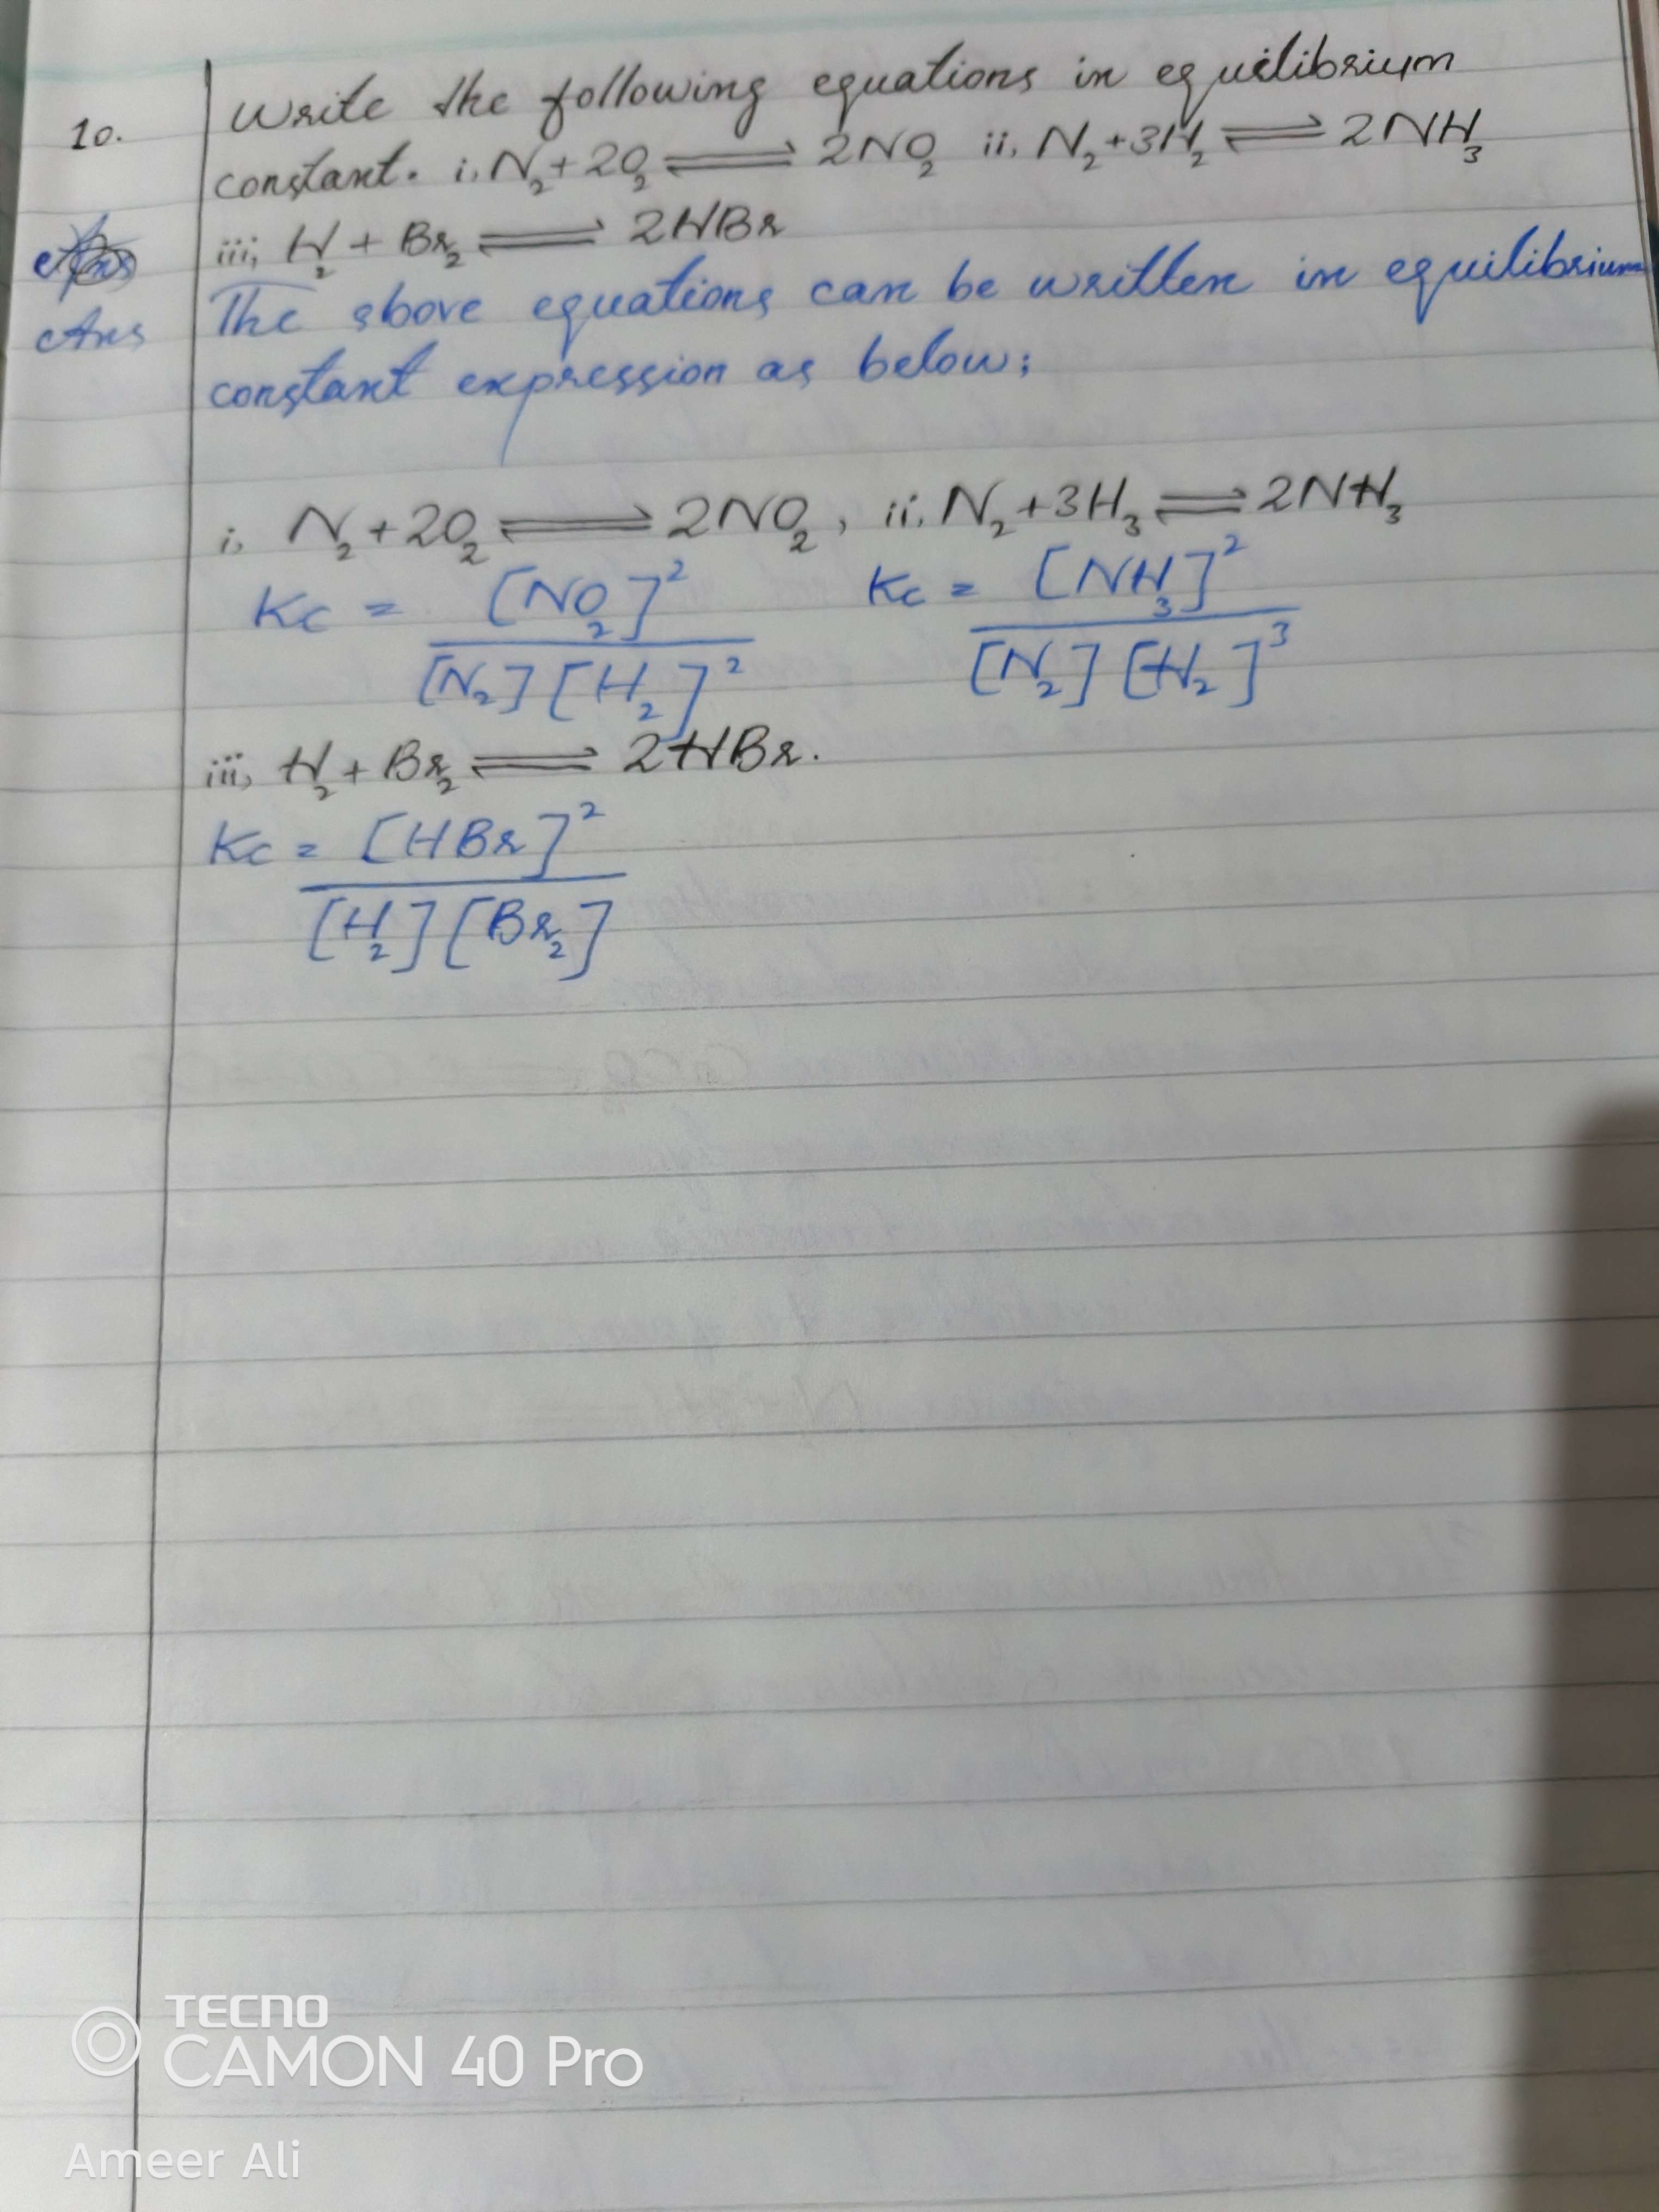 10. Write the following equations in equilibrium
constant. i, N₂+2O₂ ⇌ 2NO₂ ii, N₂+3H₂ ⇌ 2NH₃
iii, H₂ + Br₂ ⇌ 2HBr
Ans The above equations can be written in equilibrium
constant expression as below;
i, N₂+2O₂ ⇌ 2NO₂, ii, N₂+3H₃ ⇌ 2NH₃
Kc = [NO₂]² / [N₂][H₂]² Kc = [NH₃]² / [N₂][H₂]³
iii, H₂ + Br₂ ⇌ 2HBr.
Kc = [HBr]² / [H₂][Br₂]
TECNO
CAMON 40 Pro
Ameer Ali